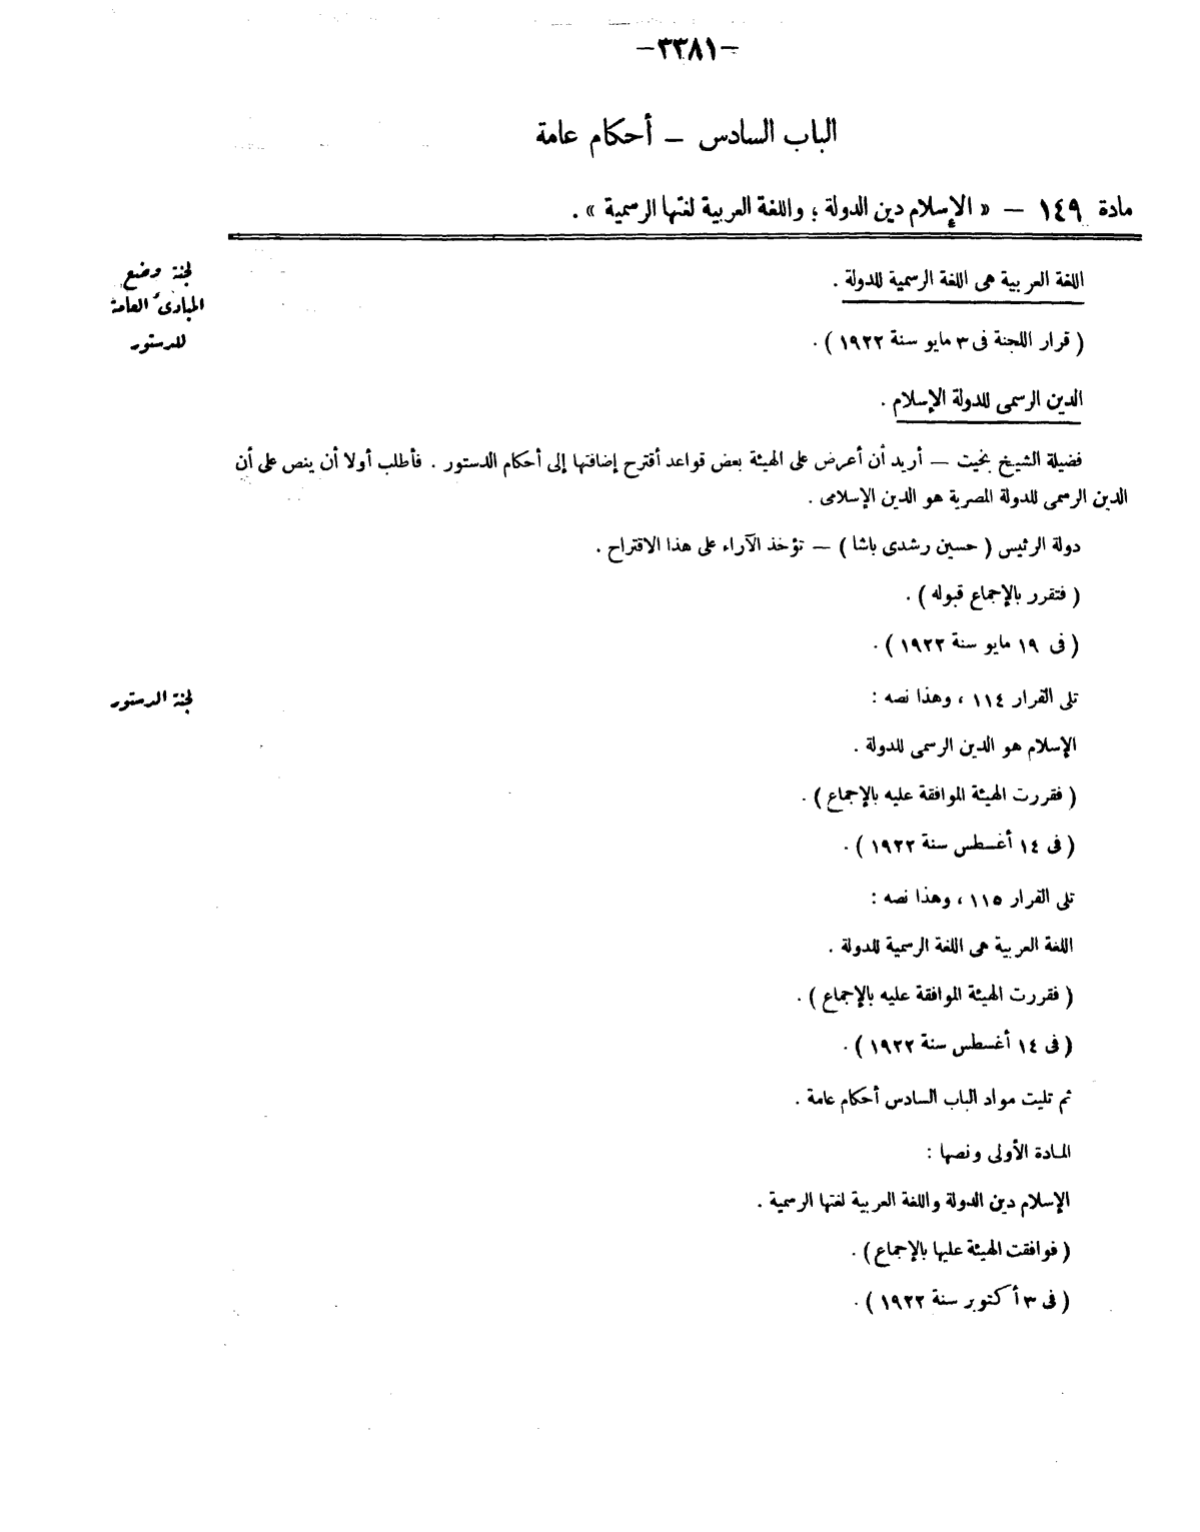 -٣٣٨١-
الباب السادس – أحكام عامة
مادة ١٤٩ – « الإسلام دين الدولة ؛ واللغة العربية لغتها الرسمية » .
لجنة وضع
المبادئ العامة
للدستور
اللغة العربية هى اللغة الرسمية للدولة .
( قرار اللجنة فى ٣ مايو سنة ١٩٢٢ ) .
الدين الرسمى للدولة الإسلام .
فضيلة الشيخ بخيت – أريد أن أعرض على الهيئة بعض قواعد أقترح إضافتها إلى أحكام الدستور . فأطلب أولا أن ينص على أن
الدين الرسمى للدولة المصرية هو الدين الإسلامى .
دولة الرئيس ( حسين رشدى باشا ) – تؤخذ الآراء على هذا الاقتراح .
( فتقرر بالإجماع قبوله ) .
( فى ١٩ مايو سنة ١٩٢٢ ) .
لجنة الدستور
تلى القرار ١١٤ ، وهذا نصه :
الإسلام هو الدين الرسمى للدولة .
( فقررت الهيئة الموافقة عليه بالإجماع ) .
( فى ١٤ أغسطس سنة ١٩٢٢ ) .
تلى القرار ١١٥ ، وهذا نصه :
اللغة العربية هى اللغة الرسمية للدولة .
( فقررت الهيئة الموافقة عليه بالإجماع ) .
( فى ١٤ أغسطس سنة ١٩٢٢ ) .
ثم تليت مواد الباب السادس أحكام عامة .
المادة الأولى ونصها :
الإسلام دين الدولة واللغة العربية لغتها الرسمية .
( فوافقت الهيئة عليها بالإجماع ) .
( فى ٣ أكتوبر سنة ١٩٢٢ ) .